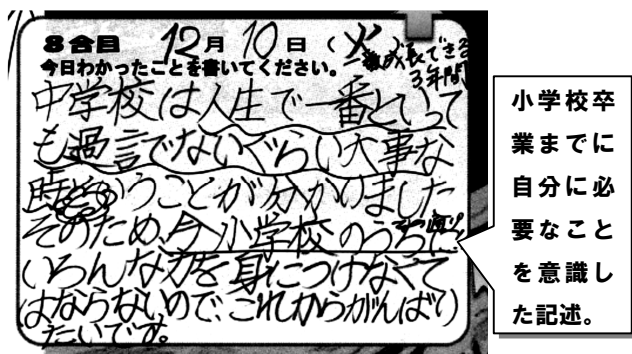 8合目 12月10日(火)
今日わかったことを書いてください。
一番成長できる
3年間
中学校は人生で一番といって
も過言でないぐらい大事な
時ということが分かりました
そのため、今小学校のうちに
その通り
いろんな力を身につけなくて
はならないので、これからがんばり
たいです。
小学校卒
業までに
自分に必
要なこと
を意識し
た記述。